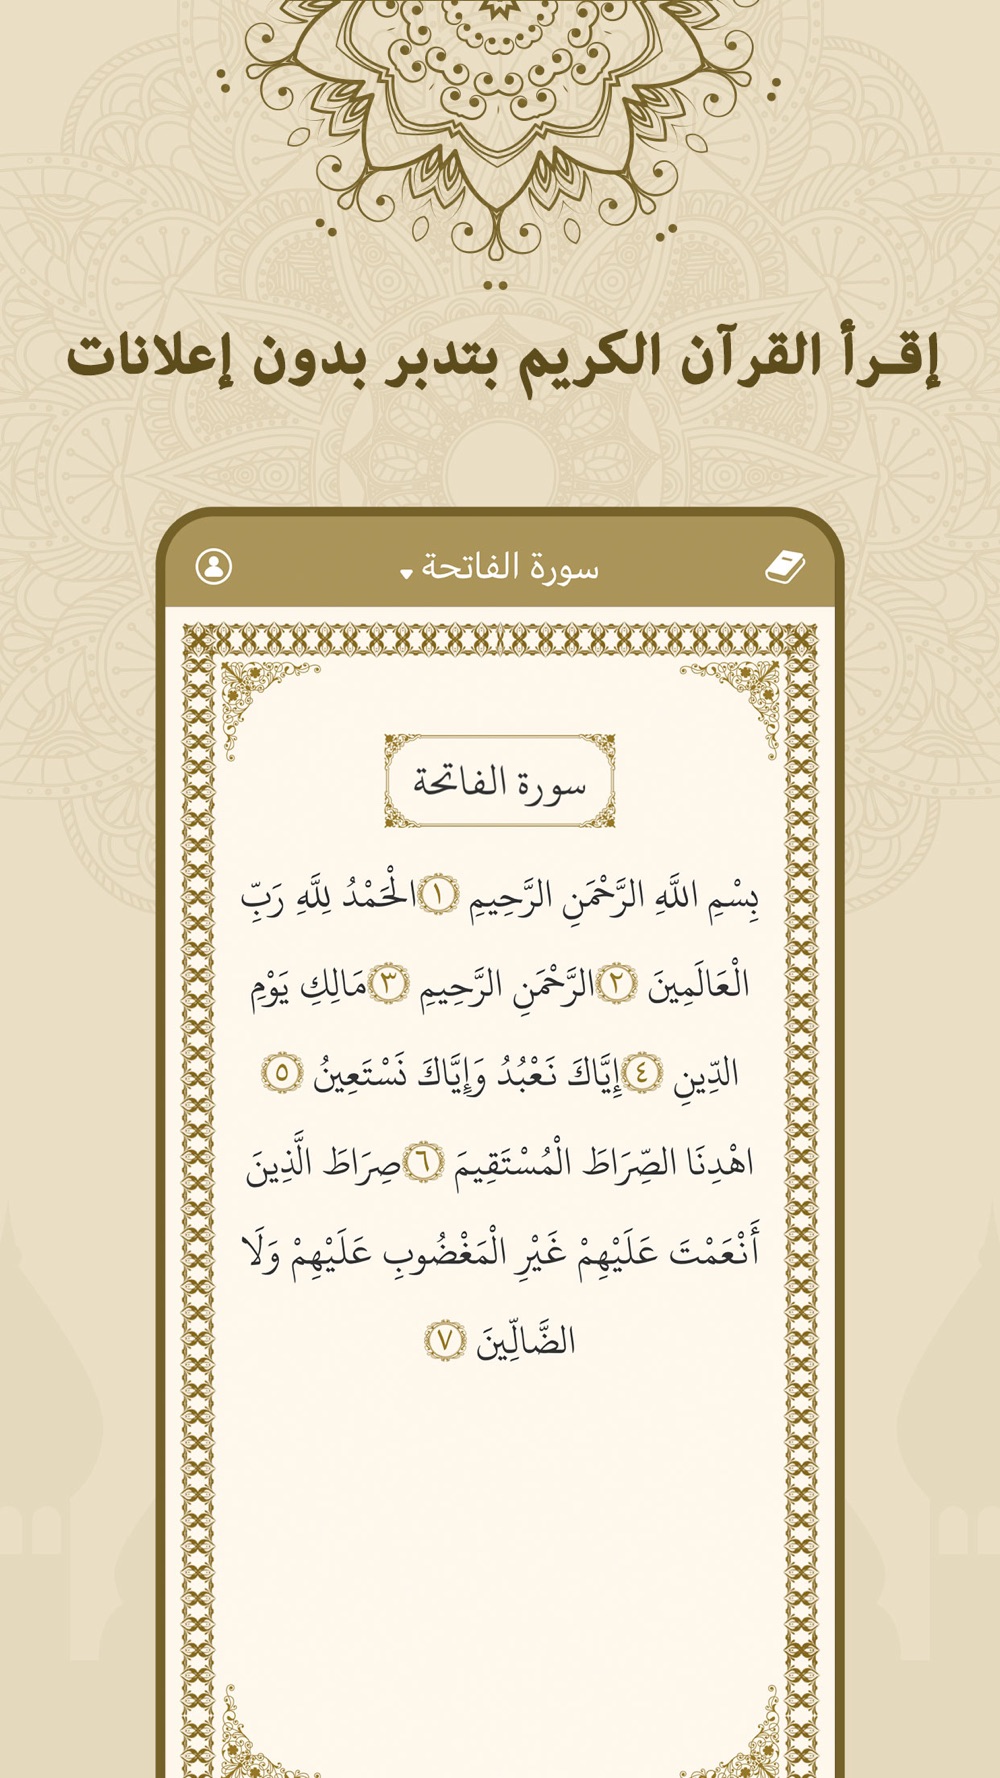 إقـرأ القرآن الكريم بتدبر بدون إعلانات
سورة الفاتحة
سورة الفاتحة
بِسْمِ اللَّهِ الرَّحْمَنِ الرَّحِيمِ ١ الْحَمْدُ لِلَّهِ رَبِّ
الْعَالَمِينَ ٢ الرَّحْمَنِ الرَّحِيمِ ٣ مَالِكِ يَوْمِ
الدِّينِ ٤ إِيَّاكَ نَعْبُدُ وَإِيَّاكَ نَسْتَعِينُ ٥
اهْدِنَا الصِّرَاطَ الْمُسْتَقِيمَ ٦ صِرَاطَ الَّذِينَ
أَنْعَمْتَ عَلَيْهِمْ غَيْرِ الْمَغْضُوبِ عَلَيْهِمْ وَلَا
الضَّالِّينَ ٧